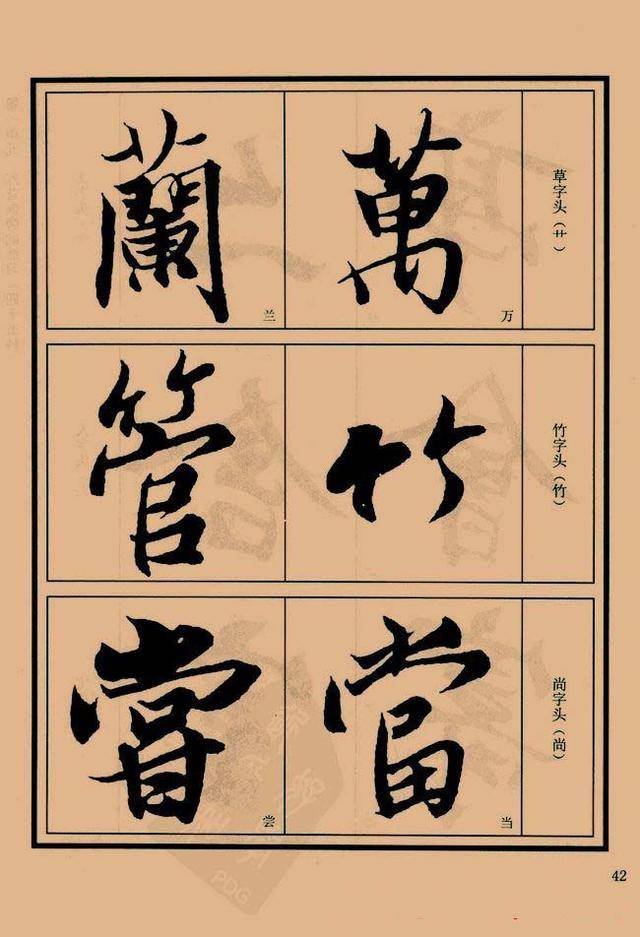 草字头（艹）
萬
万
蘭
兰
竹字头（竹）
竹
管
尚字头（尚）
當
当
嘗
尝
42
PDG